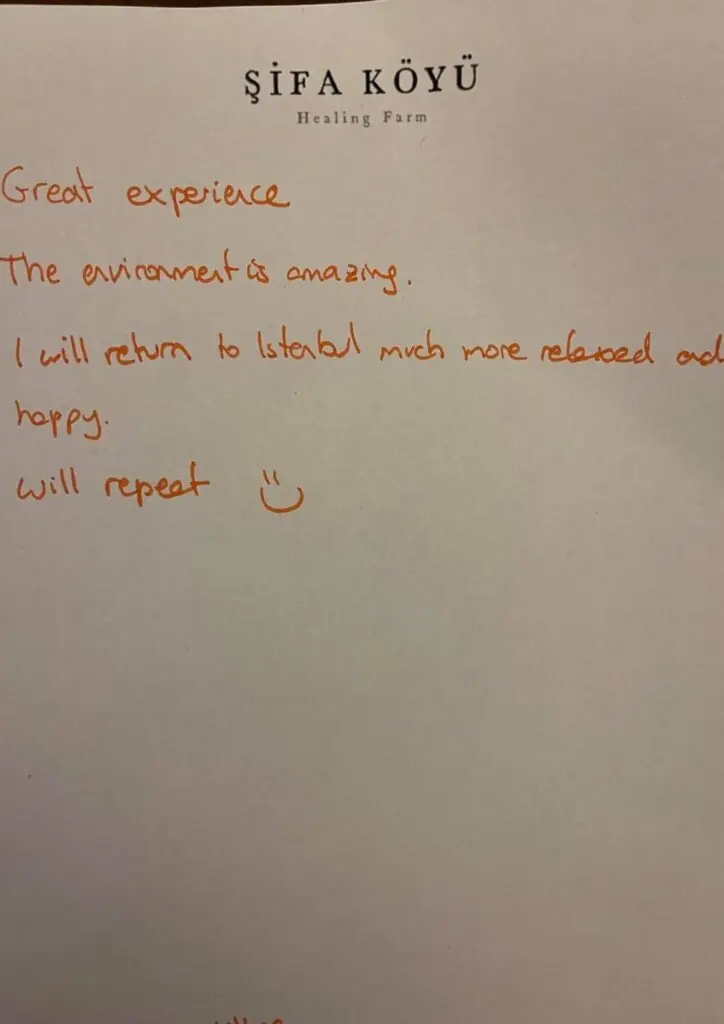 ŞİFA KÖYÜ
Healing Farm
Great experience
The environment is amazing.
I will return to Istanbul much more relaxed and
happy.
will repeat